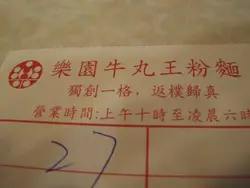 樂園牛丸王粉麵
獨創一格，返樸歸真
營業時間:上午十時至凌晨六時
27